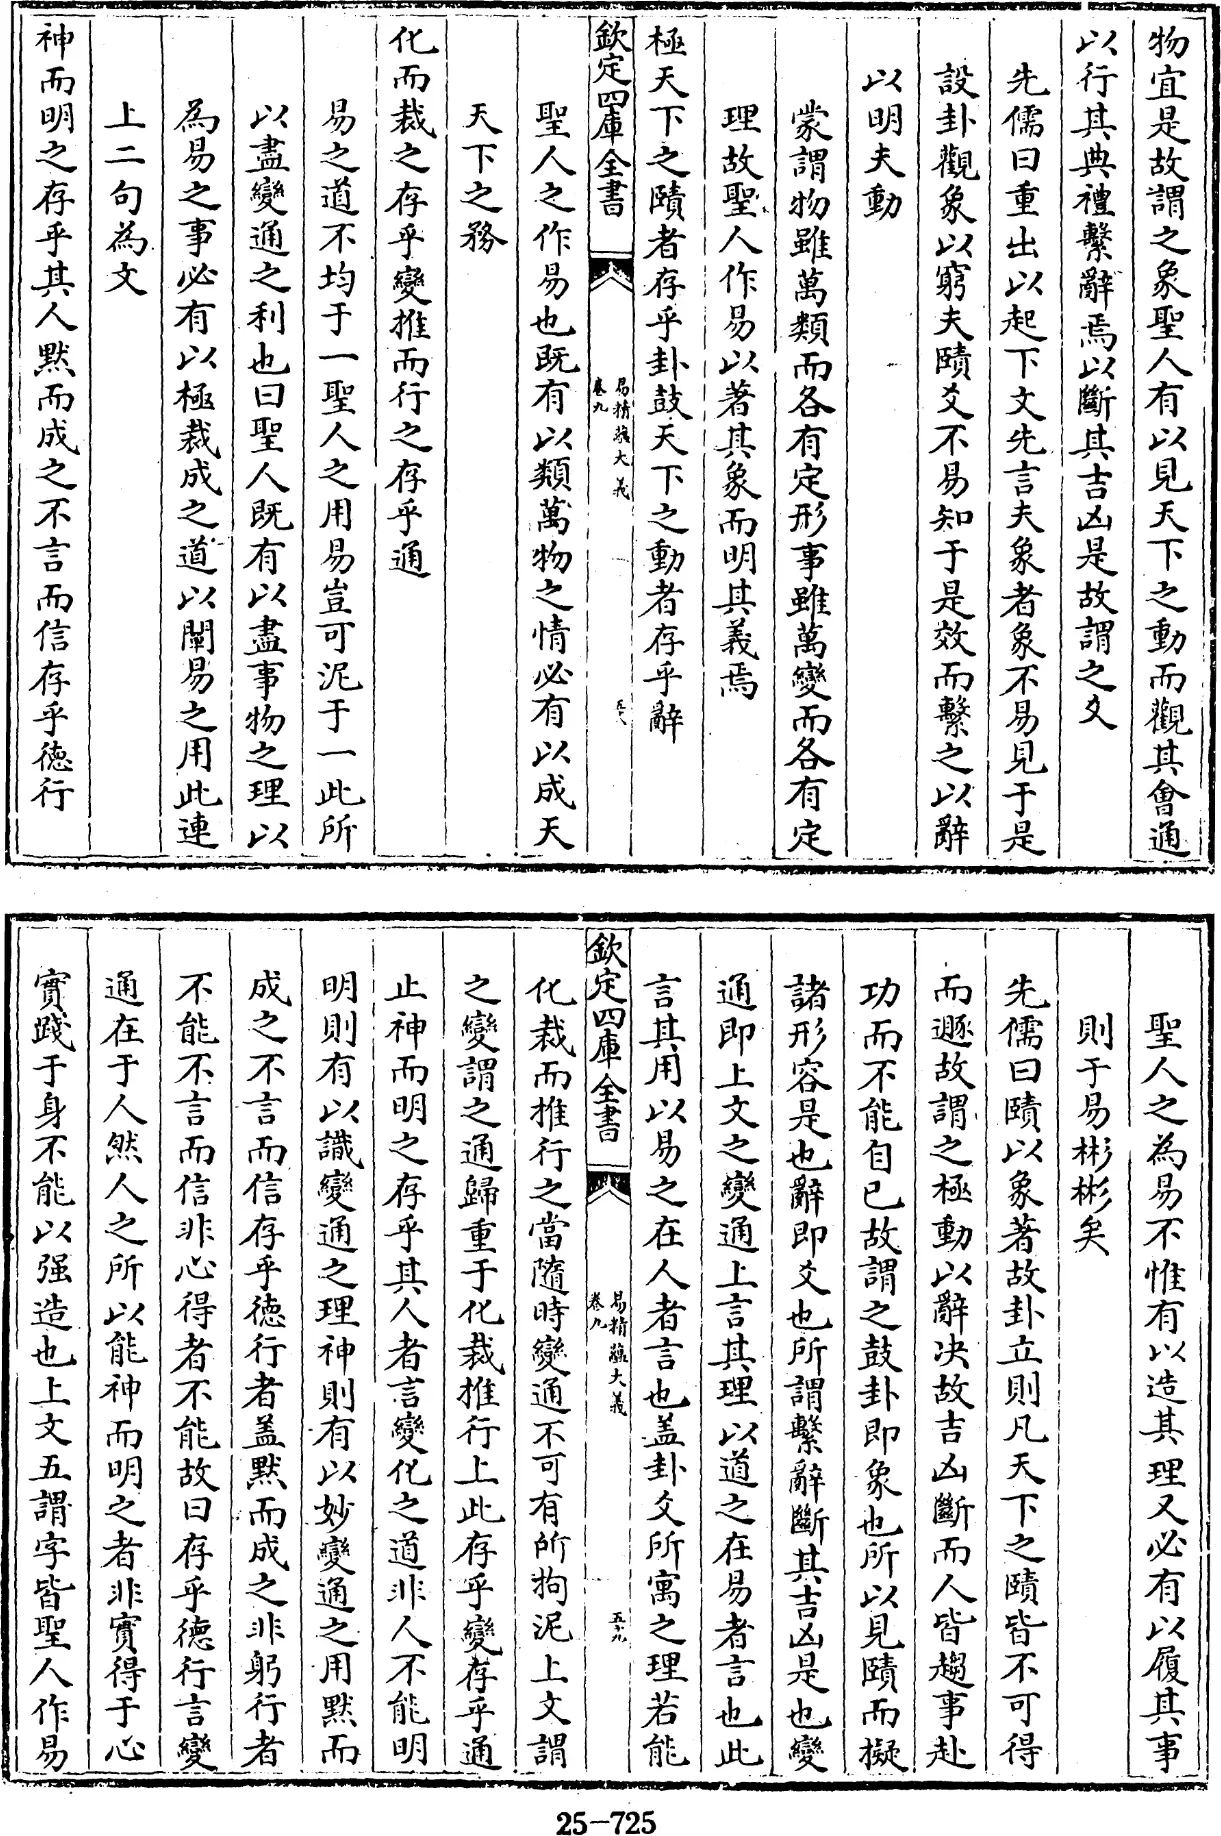 物宜是故謂之象聖人有以見天下之動而觀其會通
以行其典禮繫辭焉以斷其吉凶是故謂之爻
先儒曰重出以起下文先言夫象者象不易見于是
設卦觀象以窮夫賾爻不易知于是效而繫之以辭
以明夫動
蒙謂物雖萬類而各有定形事雖萬變而各有定
理故聖人作易以著其象而明其義焉
極天下之賾者存乎卦鼓天下之動者存乎辭
欽定四庫全書
易精蘊大義
卷九
五十八
聖人之作易也既有以類萬物之情必有以成天
天下之務
化而裁之存乎變推而行之存乎通
易之道不均于一聖人之用易豈可泥于一此所
以盡變通之利也曰聖人既有以盡事物之理以
為易之事必有以極裁成之道以闡易之用此連
上二句為文
神而明之存乎其人黙而成之不言而信存乎德行
聖人之為易不惟有以造其理又必有以履其事
則于易彬彬矣
先儒曰賾以象著故卦立則凡天下之賾皆不可得
而遯故謂之極動以辭決故吉凶斷而人皆趨事赴
功而不能自已故謂之鼓卦即象也所以見賾而擬
諸形容是也辭即爻也所謂繫辭斷其吉凶是也變
通即上文之變通上言其理以道之在易者言也此
言其用以易之在人者言也蓋卦爻所寓之理若能
欽定四庫全書
易精蘊大義
卷九
五十九
化裁而推行之當隨時變通不可有所拘泥上文謂
之變謂之通歸重于化裁推行上此存乎變存乎通
止神而明之存乎其人者言變化之道非人不能明
明則有以識變通之理神則有以妙變通之用黙而
成之不言而信存乎德行者蓋黙而成之非躬行者
不能不言而信非心得者不能故曰存乎德行言變
通在于人然人之所以能神而明之者非實得于心
實踐于身不能以强造也上文五謂字皆聖人作易
25-725